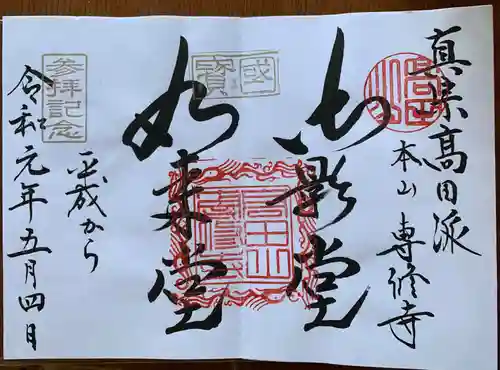 真宗高田派
本山 専修寺
御影堂
国宝
如来堂
平成から
参拝記念
令和元年五月四日